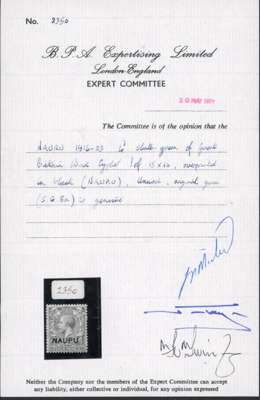 No. 2350
B. P. A. Expertising Limited
London England
EXPERT COMMITTEE
The Committee is of the opinion that the
NAURU 1916-23 green of Great
Britain 15 x 14, overprinted
in black (NAURU), unused, original gum
(S.G. ) is genuine
2350
NAURU
Neither the Company nor the members of the Expert Committee can accept
any liability, either collective or individual, for any opinion expressed